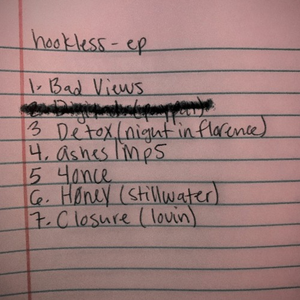 hookless - ep
1. Bad Views
2.
3 Detox (night in florence)
4. ashes | mp5
5 4once
6. Honey (stillwater)
7. Closure (lovin)